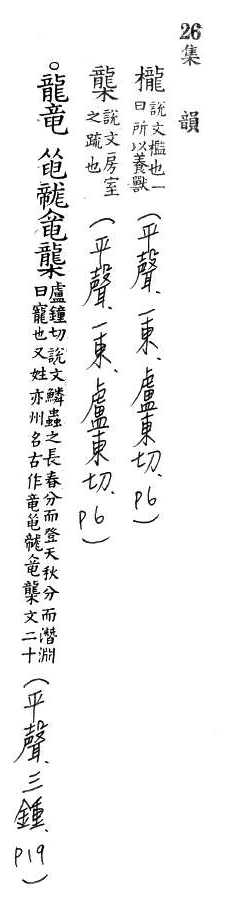 26
集韻
櫳說文檻也一曰所以養獸(平聲、一東、盧東切、P6)
襱說文房室之疏也(平聲、一東、盧東切、P6)
。龍竜盧鐘切說文鱗蟲之長春分而登天秋分而潛淵曰寵也又姓亦州名古作竜文二十(平聲、三鍾、P19)